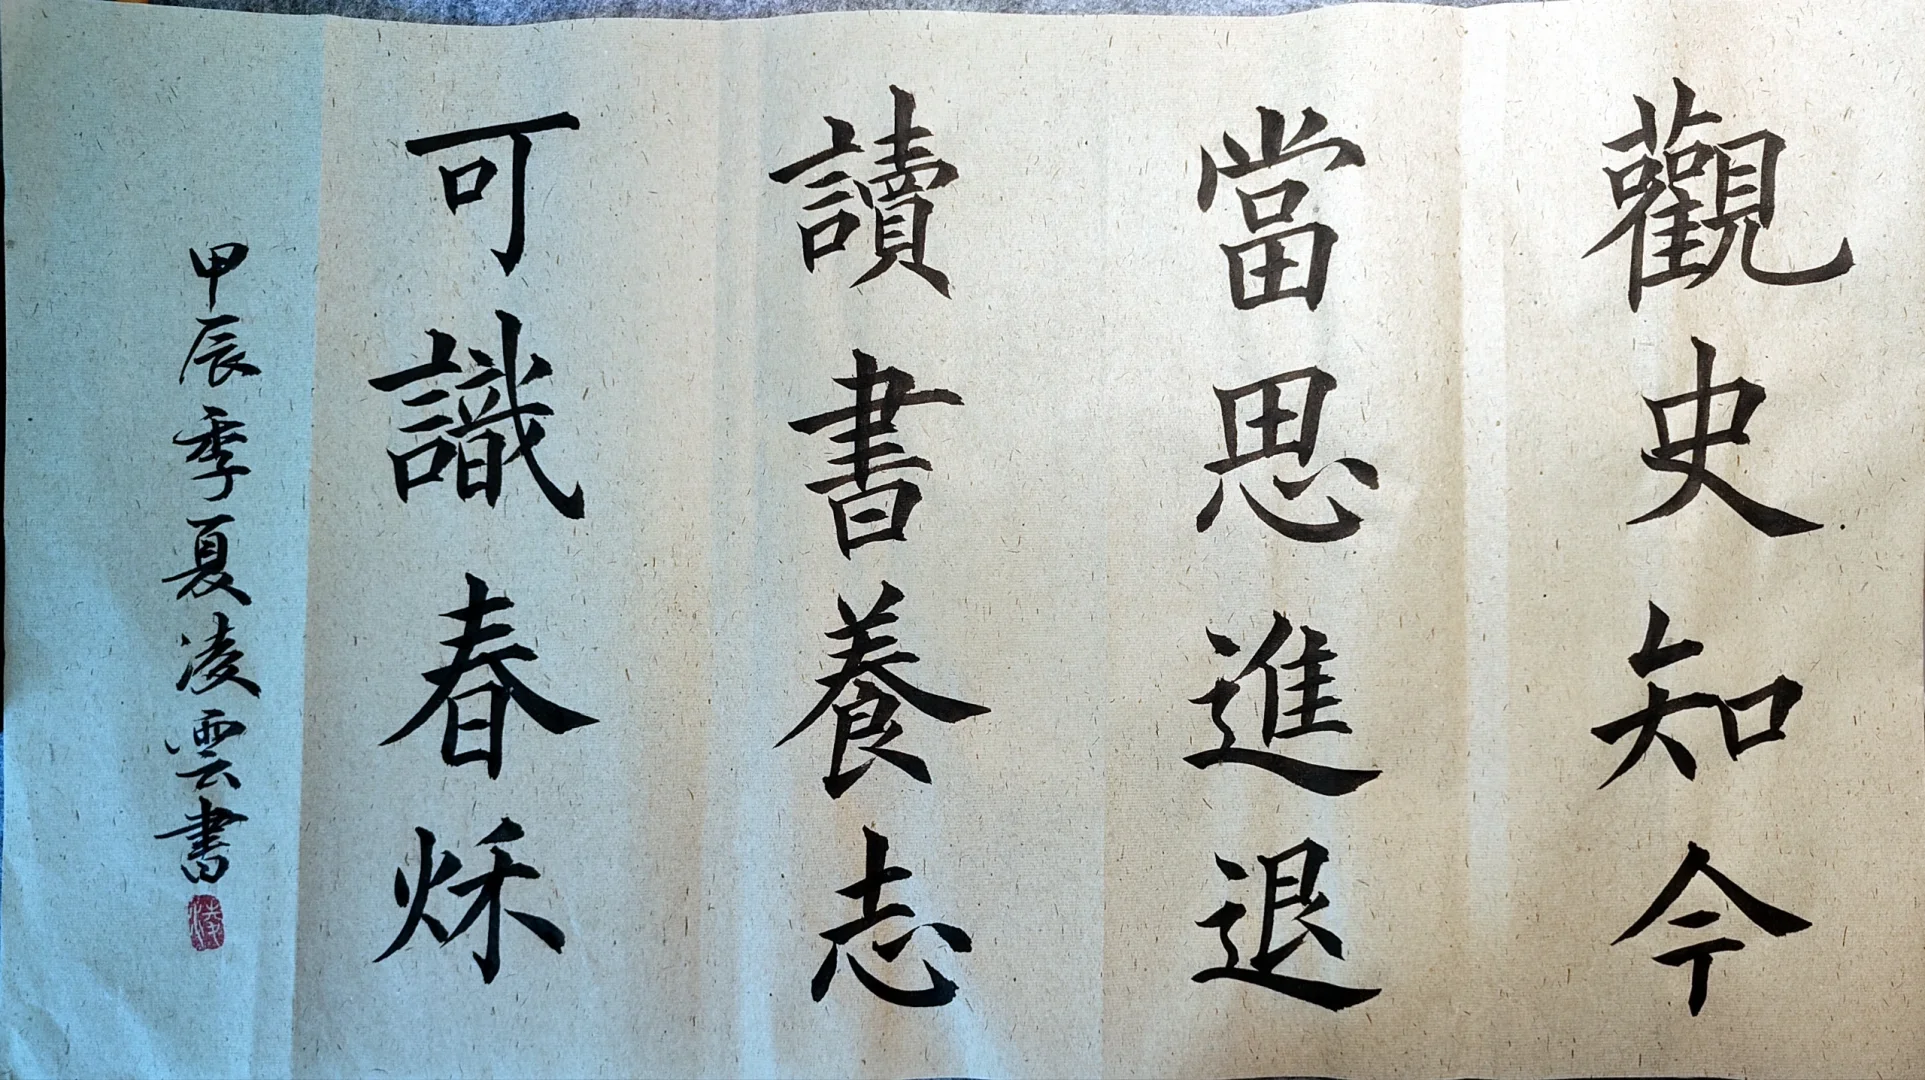 觀史知今
當思進退
讀書養志
可識春烁
甲辰季夏凌雲書